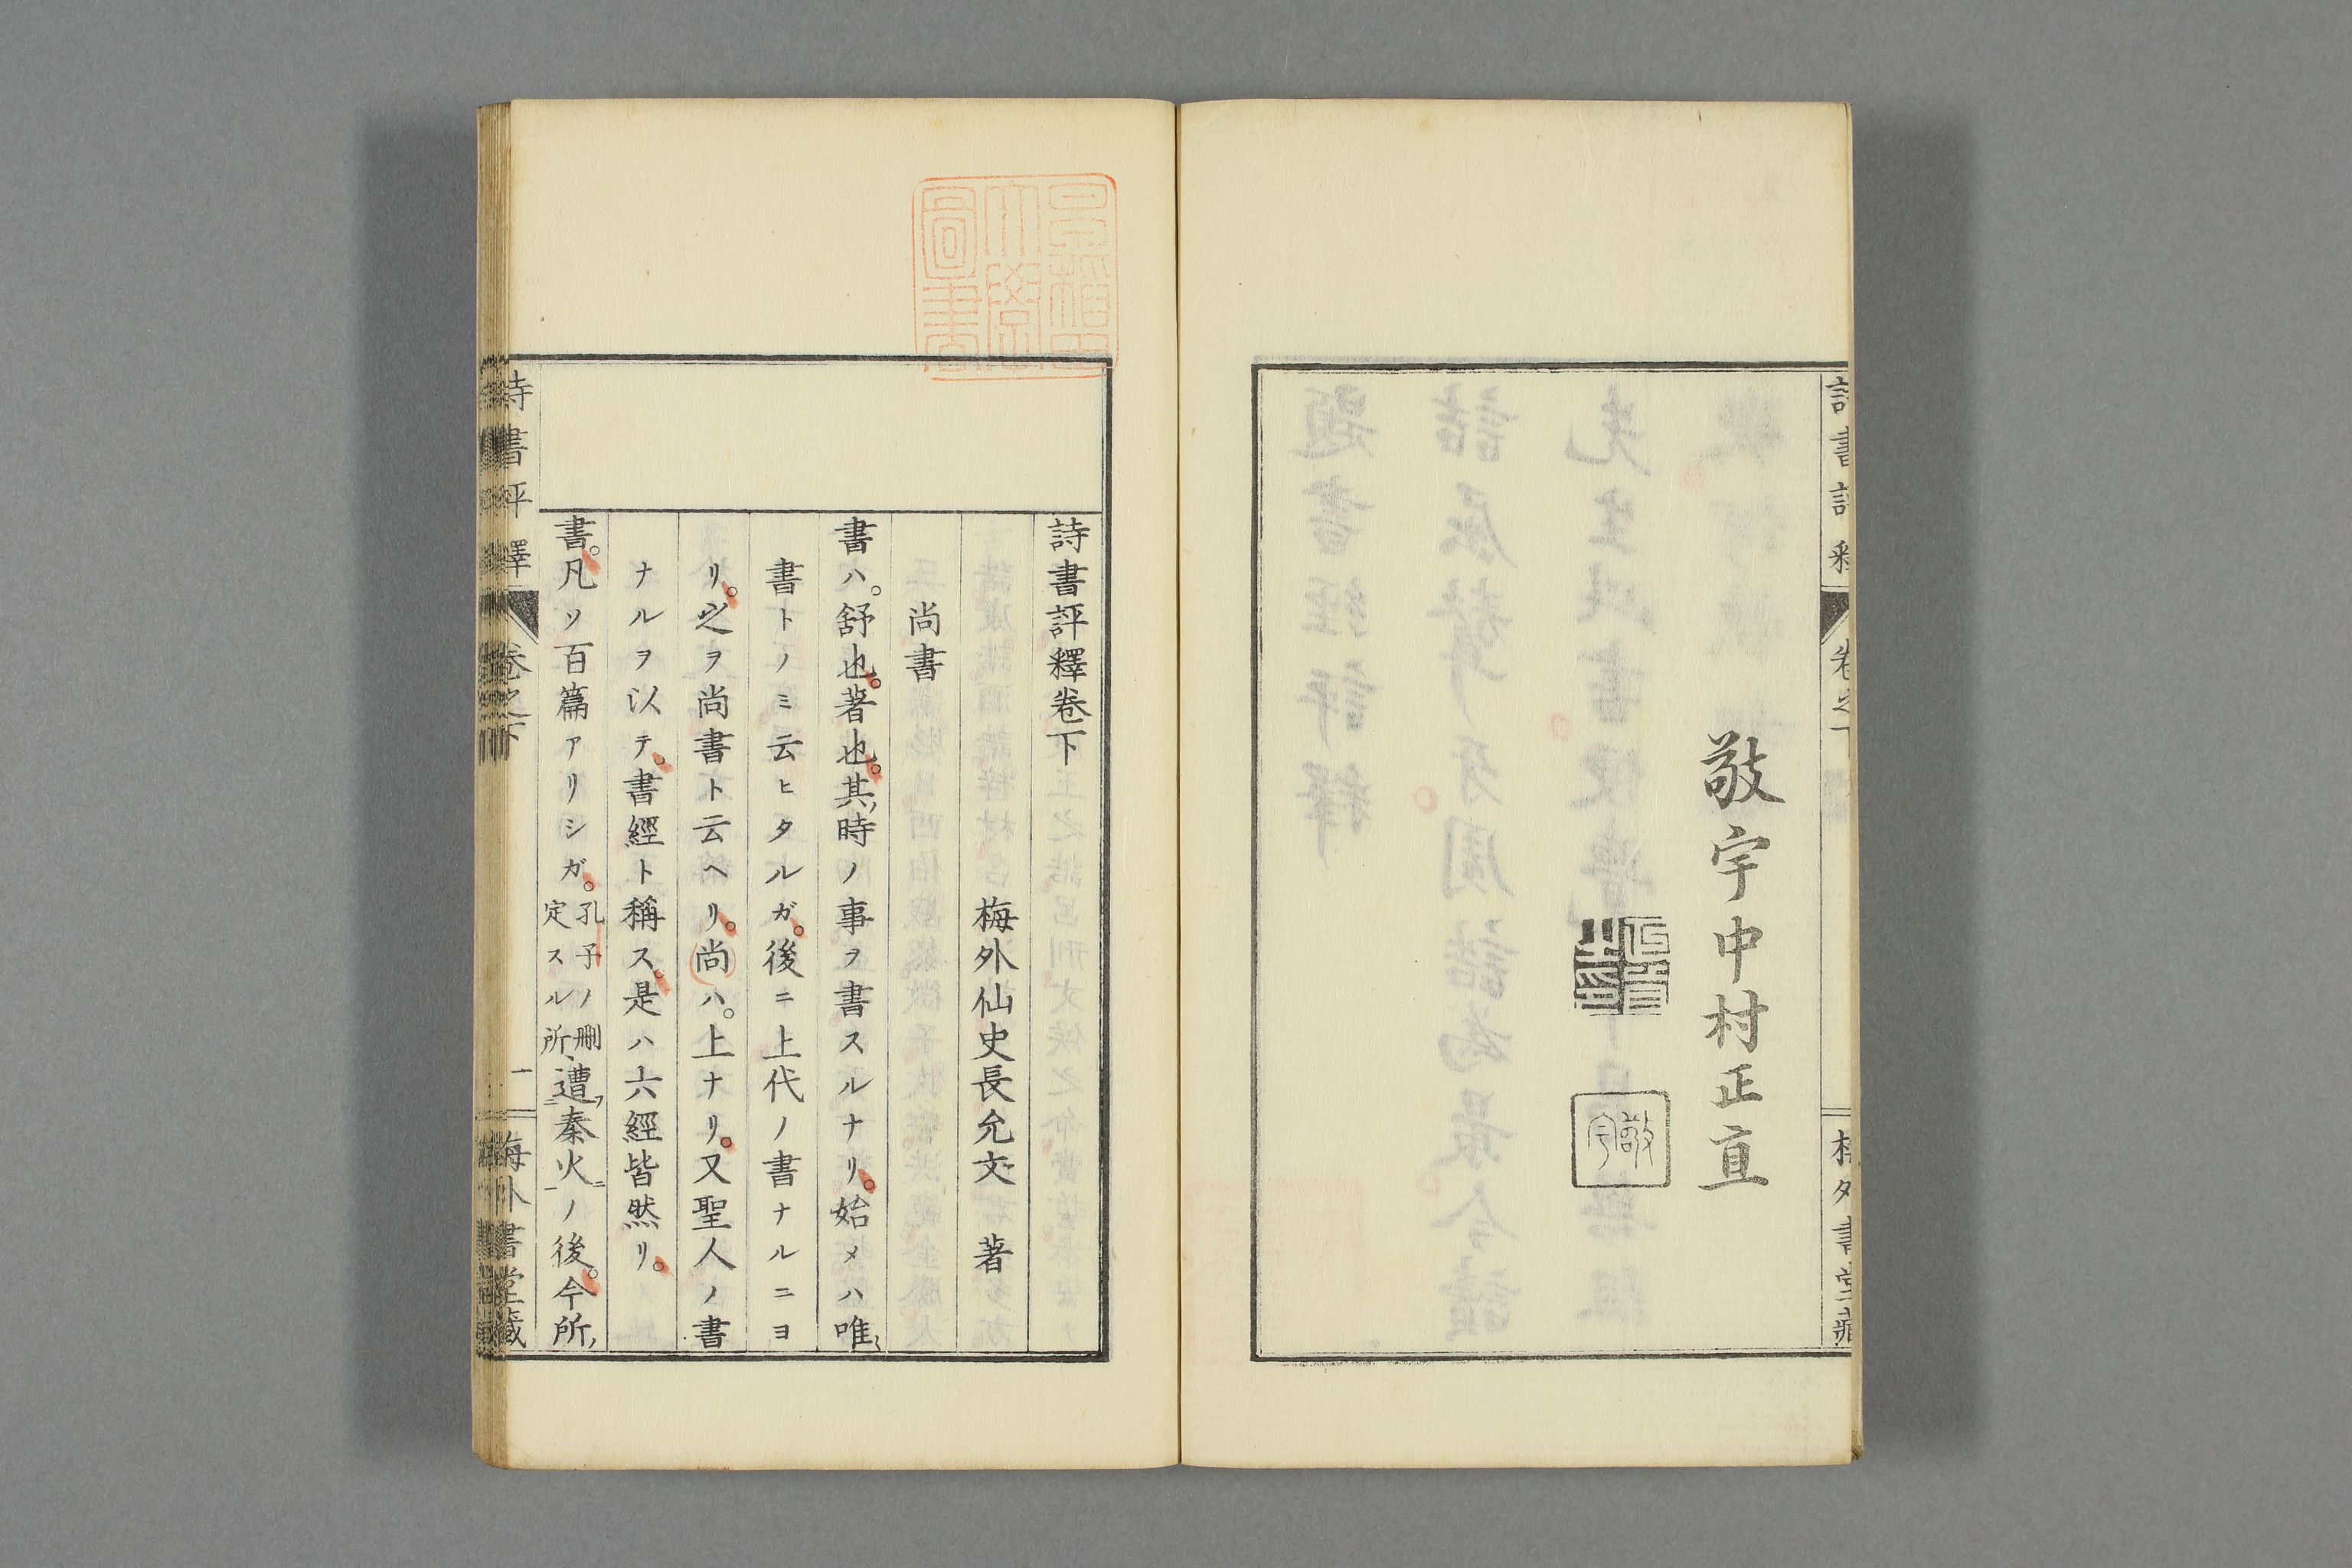 敬宇中村正直
詩書評釋卷下
梅外仙史長允文 著
尚書
書ハ。舒也。著也。其時ノ事ヲ書スルナリ。始メハ唯
書トノミ云ヒタルガ。後ニ上代ノ書ナルニヨ
リ。之ヲ尚書ト云ヘリ。尚ハ。上ナリ。又聖人ノ書
ナルヲ以テ。書經ト稱ス。是ハ六經皆然リ。
書。凡ソ百篇アリシガ。孔子ノ刪定スル所、遭秦火ノ後。今所
詩書評釋 卷之下 一 梅外書堂藏